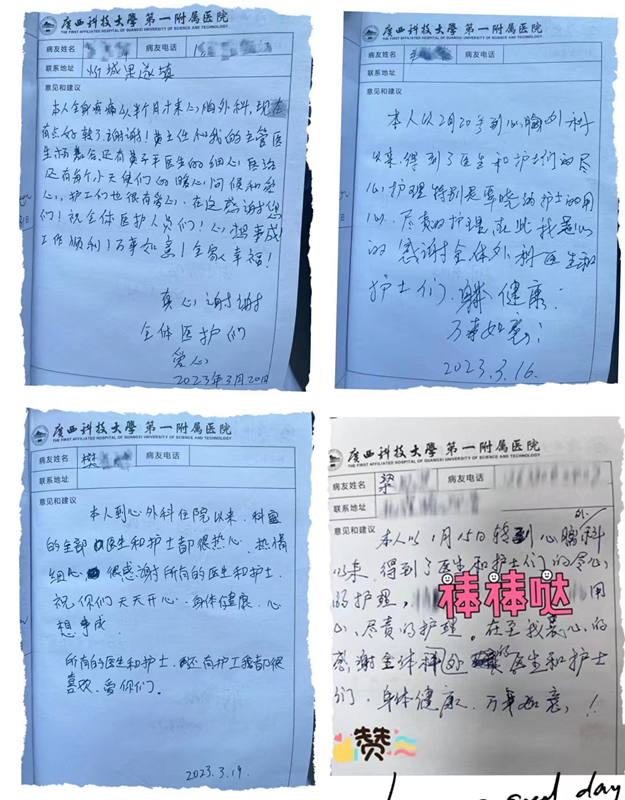 廣西科技大學 第一附属医院
THE FIRST AFFILIATED HOSPITAL OF GUANGXI UNIVERSITY OF SCIENCE AND TECHNOLOGY
病友姓名
病友电话
联系地址
忻城果遂镇
意见和建议
本人全身疼痛从半个月才来心胸外科，现在
有点好转了谢谢！黄主任和我的主管医
还有每个小天使们的暖心问候和爱
心，护工们也很有爱心，在这感谢您
们！祝全体医护人员们！心想事成
工作顺利！万事如意！全家幸福！
真心谢谢
全体医护们
爱心
2023年3月20日
廣西科技大學 第一附属医院
THE FIRST AFFILIATED HOSPITAL OF GUANGXI UNIVERSITY OF SCIENCE AND TECHNOLOGY
病友姓名
病友电话
联系地址
意见和建议
本人以2月20号到心胸外科
以来，得到了医生和护士们的尽
心护理特别是覃晓的护士的用
心、尽责的护理，在此我衷心
的感谢全体外科医生和
护士们，身体健康，
万事如意！
2023.3.16.
廣西科技大學 第一附属医院
THE FIRST AFFILIATED HOSPITAL OF GUANGXI UNIVERSITY OF SCIENCE AND TECHNOLOGY
病友姓名
樊
病友电话
联系地址
意见和建议
本人到心外科住院以来，科室
的全部医生和护士都很热心，热情
细心，很感谢所有的医生和护士
祝你们天天开心、身体健康、心
想事成
所有的医生和护士，还有护工我都很
喜欢，爱你们。
2023.3.19.
廣西科技大學 第一附属医院
THE FIRST AFFILIATED HOSPITAL OF GUANGXI UNIVERSITY OF SCIENCE AND TECHNOLOGY
病友姓名
梁
病友电话
联系地址
意见和建议
本人以1月15日转到心胸外科
以来，得到了医生和护士们的尽心
的护理，
棒棒哒
用
心、尽责的护理。在至我衷心的
感谢全体科外的医生和护士
们，身体健康，万事如意！
赞
good day